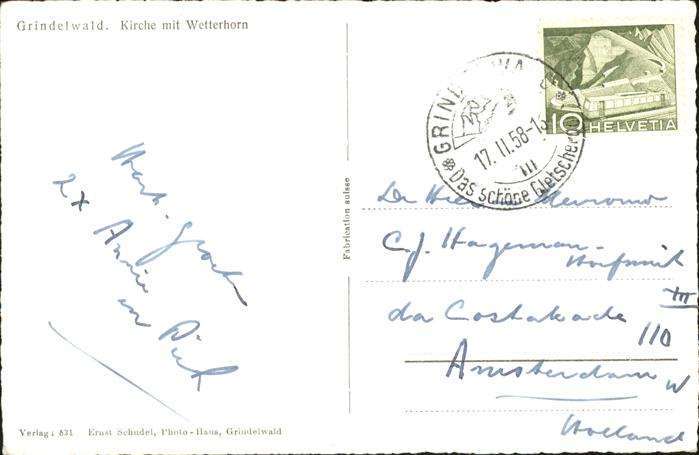 Grindelwald. Kirche mit Wetterhorn
10 HELVETIA
GRINDELWALD
17.II.58-18
Das schöne Gletscherdorf
Hart. Groet
2x
Annie
en Piet
Fabrication suisse
De Heer Mevrouw
C.J. Hageman-
da Costakade 110 III
Amsterdam W
Holland
Verlag: 831 Ernst Schudel, Photo-Haus, Grindelwald